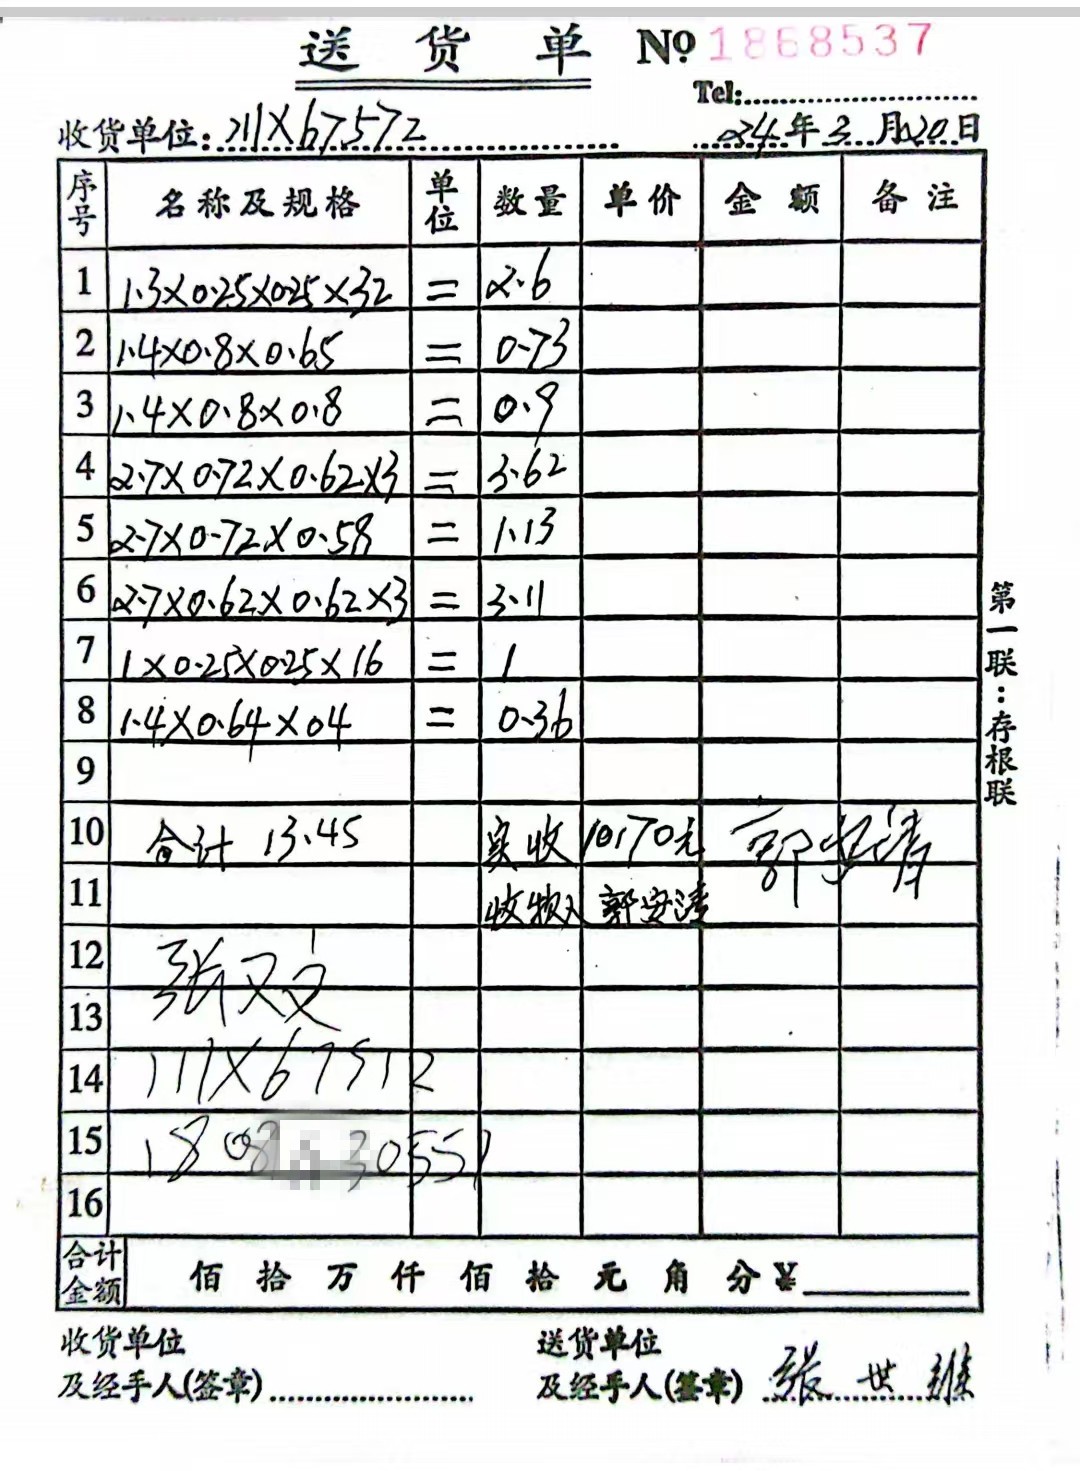 送货单 № 1868537
Tel:
收货单位: 川X67572 24年3月20日
序号 名称及规格 单位 数量 单价 金额 备注
1 1.3×0.25×0.25×32 = 2.6
2 1.4×0.8×0.65 = 0.73
3 1.4×0.8×0.8 = 0.9
4 2.7×0.72×0.62×3 = 3.62
5 2.7×0.72×0.58 = 1.13
6 2.7×0.62×0.62×3 = 3.11
7 1×0.25×0.25×16 = 1
8 1.4×0.64×04 = 0.36
9
10 合计 13.45 实收 10170元
11 收物人 郭安清
12 张又文
13
14 川X67512
15
16
合计金额 佰拾万仟佰拾元角分¥
第一联:存根联
收货单位 送货单位
及经手人(签章) 及经手人(签章) 张世雄